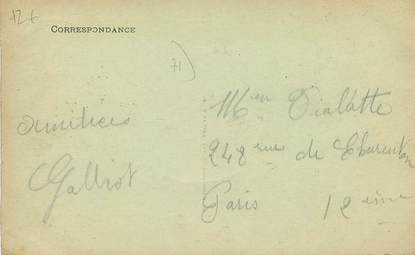 12 €
CORRESPONDANCE
71)
amitiées
Galliot
Mien Viallatte
248 rue de Charenton
Paris 12 ème